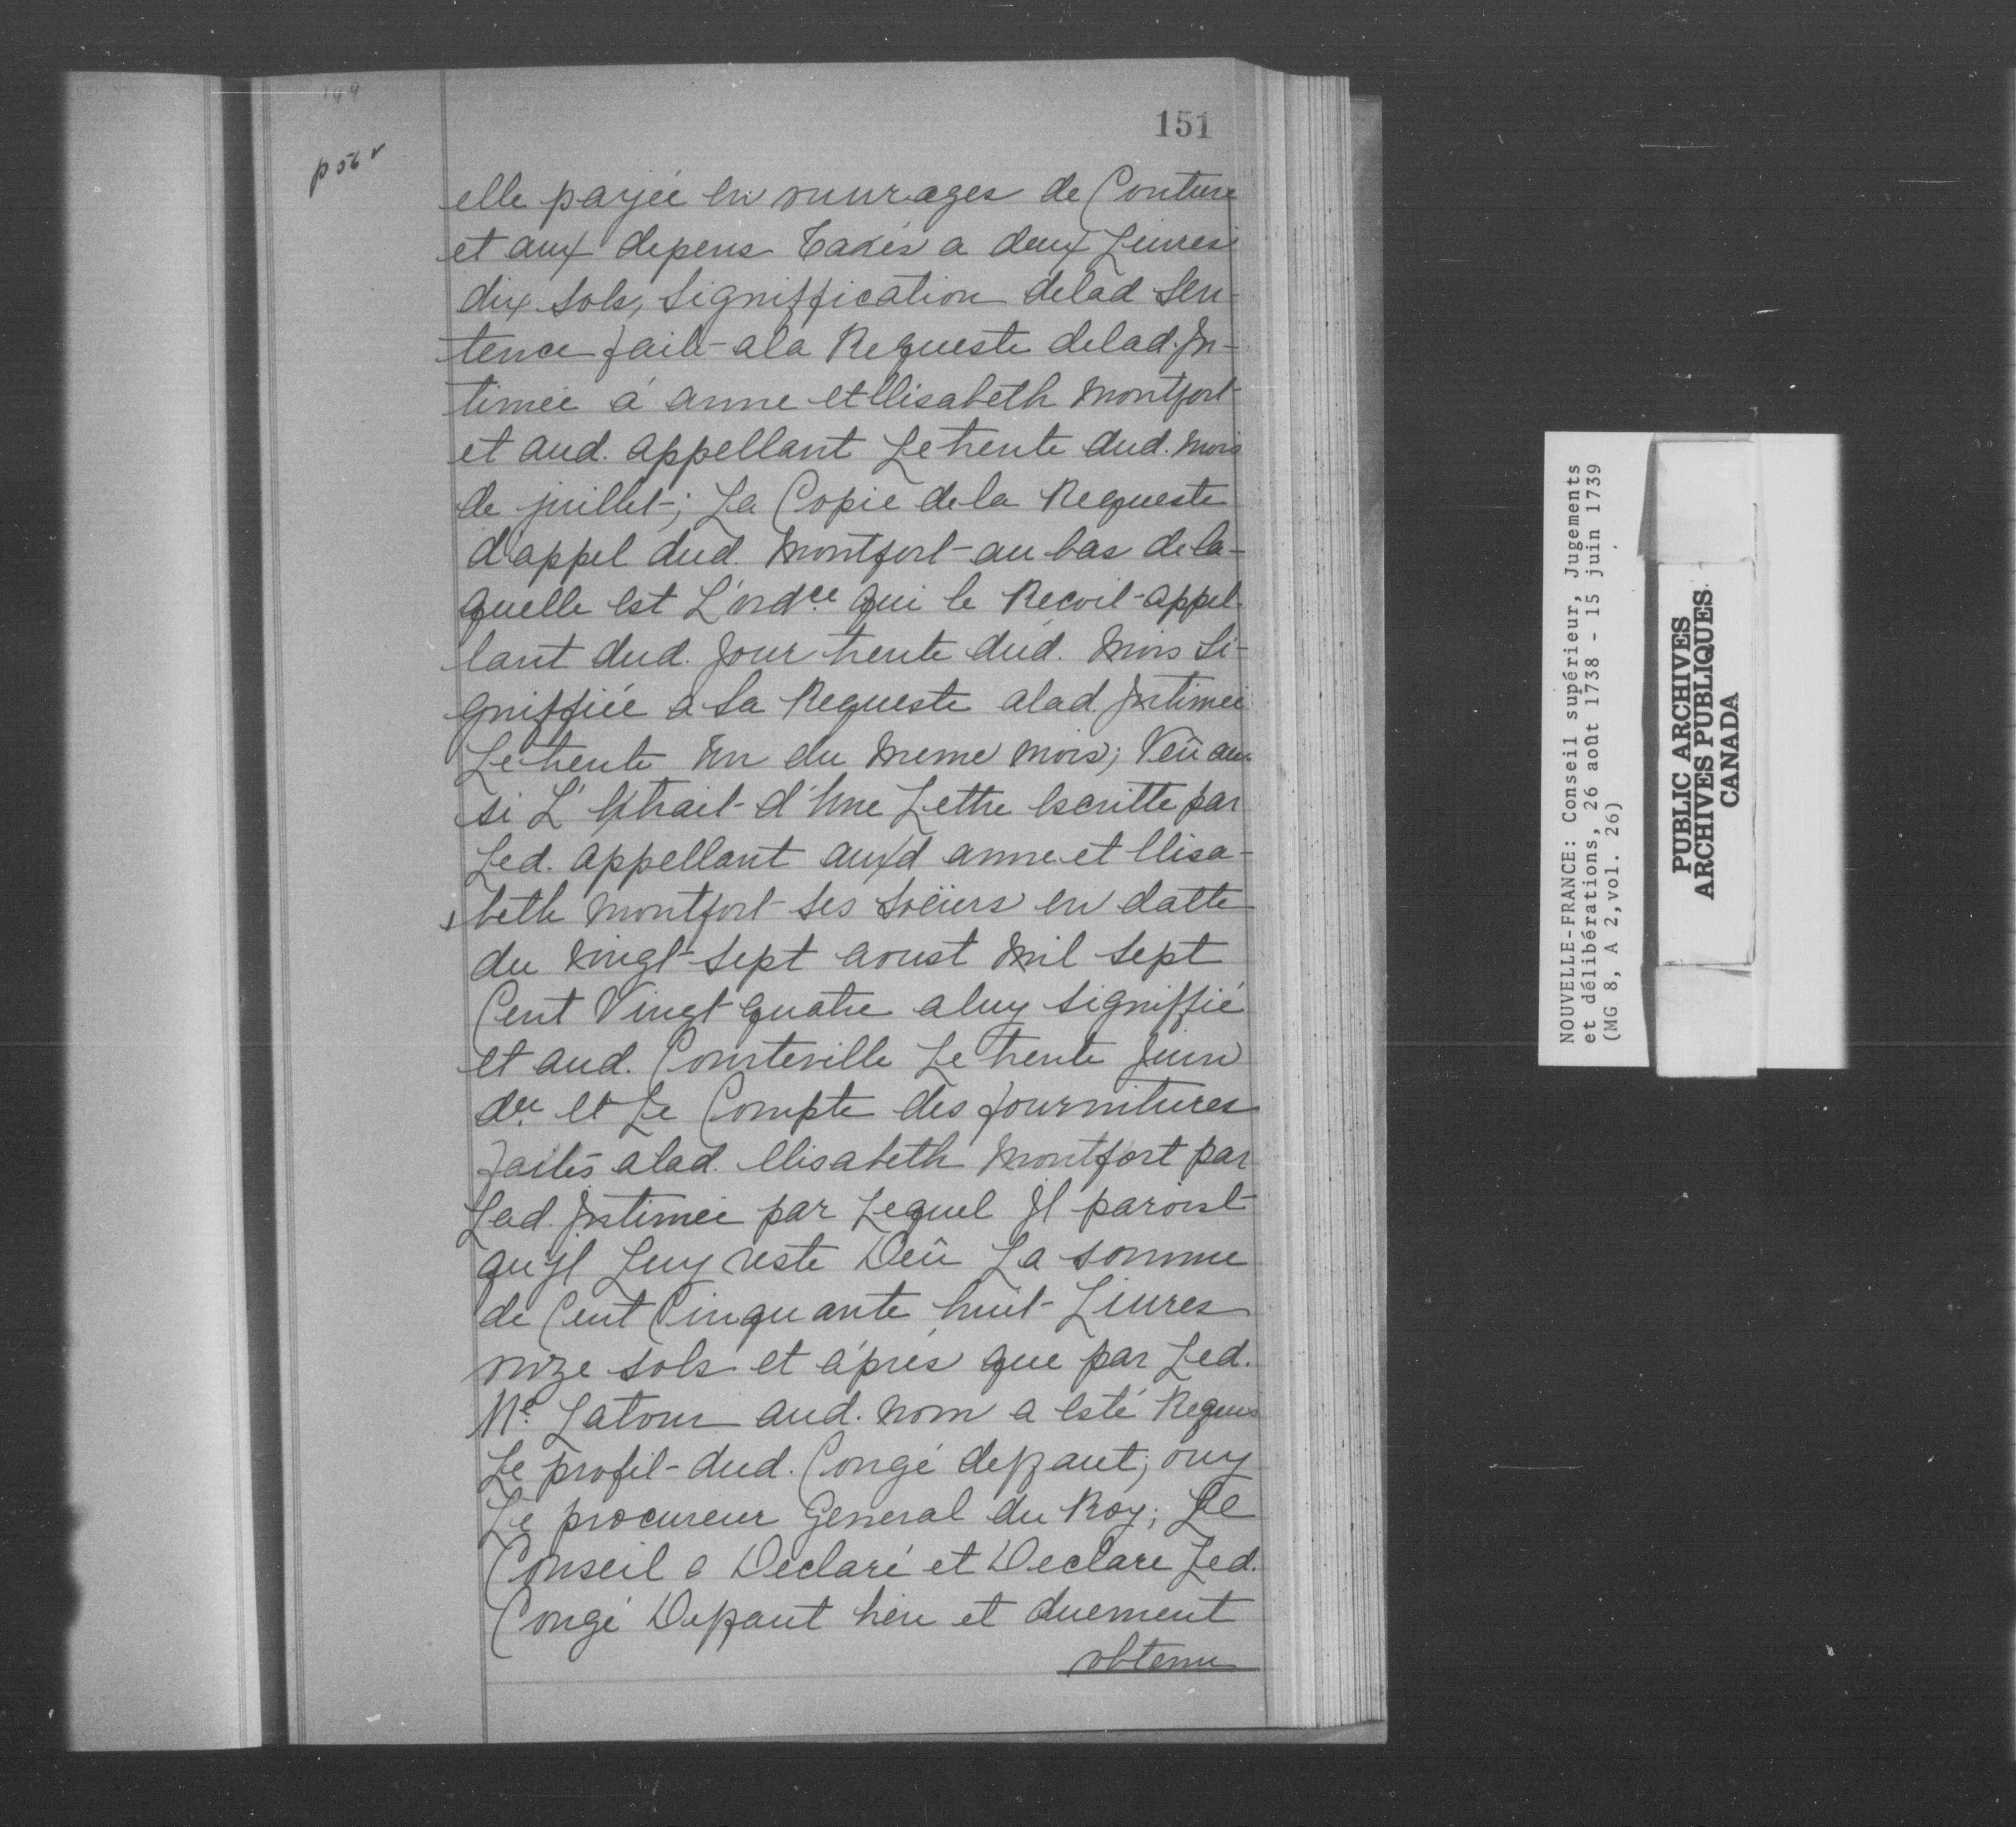 149
151
p 56 v
elle payée en ouvrages de Couture
et aux depens taxés a deux Livres
dix sols, signiffication delad sen-
tence faite ala Requeste delad. In-
timée á anne et Elisabeth Montfort
et aud. appellant Le trente dud. mois
de juillet; La Copie de la Requeste
d'appel dud. Montfort au bas de la-
quelle est L'ordce qui le Recoit appel-
lant dud. Jour trente dud. Mois Si-
gniffiée a Sa Requeste alad. Intimée
Le trente Un du meme mois; Veû aus-
si L'Extrait d'Une Lettre Escritte par
Led. appellant auxd anne et Elisa-
beth Montfort ses soeurs en datte
du Vingt sept aoust Mil Sept
Cent Vingt quatre a luy signiffié
et aud. Courteville Le trente Juin
der et Le Compte des fournitures
faites alad. Elisabeth Montfort par
Lad. Intimée par Lequel Il paroist
qu'Il Luy reste Deû La somme
de Cent Cinquante huit Livres
onze sols et aprés que par Led.
Me Latour aud. nom a Esté Requis
Le profit dud. Congé deffaut; ouy
Le procureur General du Roy; Le
Conseil a Declaré et Declare Led.
Congé Deffaut bien et duement
obtenu
NOUVELLE-FRANCE: Conseil supérieur, Jugements
et délibérations, 26 août 1738 - 15 juin 1739
(MG 8, A 2, vol. 26)
PUBLIC ARCHIVES
ARCHIVES PUBLIQUES
CANADA